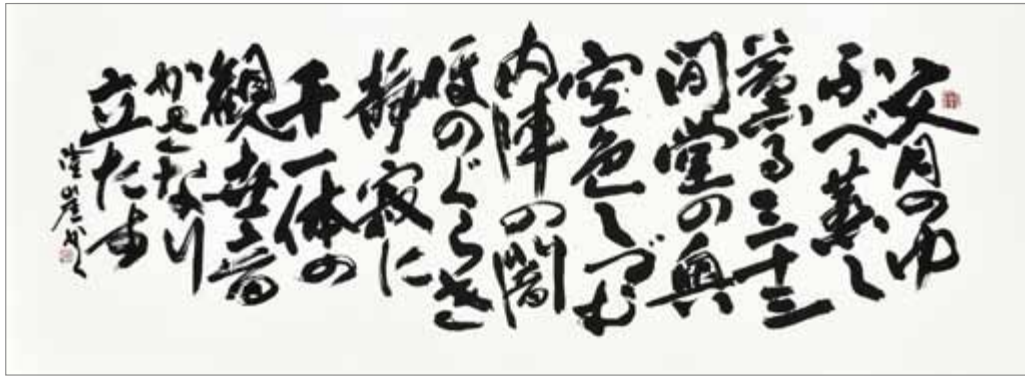 文月のゆ
ふべ蒸し
薫る三十三
間堂の奥
空色しづむ
内陣の闇
ほのぐらき
静寂に
千一体の
観世音
なり
立たす